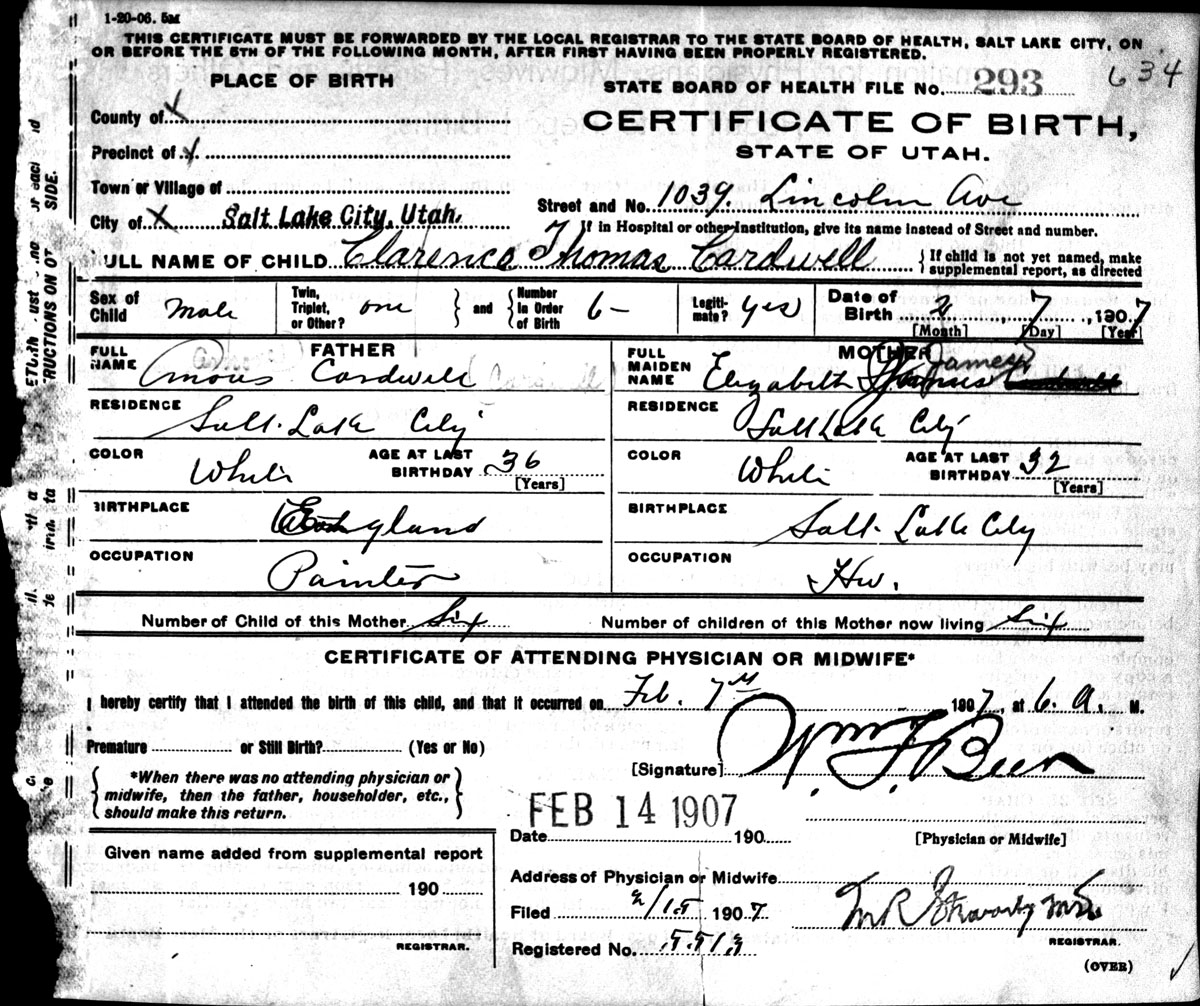 1-20-06. 5M
THIS CERTIFICATE MUST BE FORWARDED BY THE LOCAL REGISTRAR TO THE STATE BOARD OF HEALTH, SALT LAKE CITY, ON
OR BEFORE THE 5TH OF THE FOLLOWING MONTH, AFTER FIRST HAVING BEEN PROPERLY REGISTERED.
PLACE OF BIRTH
STATE BOARD OF HEALTH FILE No. 293 634
County of X
CERTIFICATE OF BIRTH,
Precinct of X
STATE OF UTAH.
Town or Village of
City of X Salt Lake City, Utah.
Street and No. 1039. Lincoln Ave
If in Hospital or other Institution, give its name instead of Street and number.
ULL NAME OF CHILD Clarence Thomas Cardwell
{ If child is not yet named, make
supplemental report, as directed
Sex of Child Male
Twin, Triplet, or Other? one } and { Number in Order of Birth 6-
Legitimate? yes
Date of Birth 2, 7, 1907
[Month] [Day] [Year]
FATHER
FULL NAME Amous Cardwell
MOTHER
FULL MAIDEN NAME Elizabeth James
RESIDENCE Salt Lake City
RESIDENCE Salt Lake City
COLOR White
AGE AT LAST BIRTHDAY 36
[Years]
COLOR White
AGE AT LAST BIRTHDAY 32
[Years]
BIRTHPLACE England
BIRTHPLACE Salt Lake City
OCCUPATION Painter
OCCUPATION Hw.
Number of Child of this Mother Six
Number of children of this Mother now living Six
CERTIFICATE OF ATTENDING PHYSICIAN OR MIDWIFE*
I hereby certify that I attended the birth of this child, and that it occurred on Feb. 7th 1907, at 6. a. M.
Premature or Still Birth? (Yes or No)
[Signature]
{ *When there was no attending physician or
midwife, then the father, householder, etc.,
should make this return. }
FEB 14 1907
Date 190
[Physician or Midwife]
Given name added from supplemental report
190
REGISTRAR.
Address of Physician or Midwife
Filed 2/15 1907
REGISTRAR.
Registered No. 5513
(OVER)